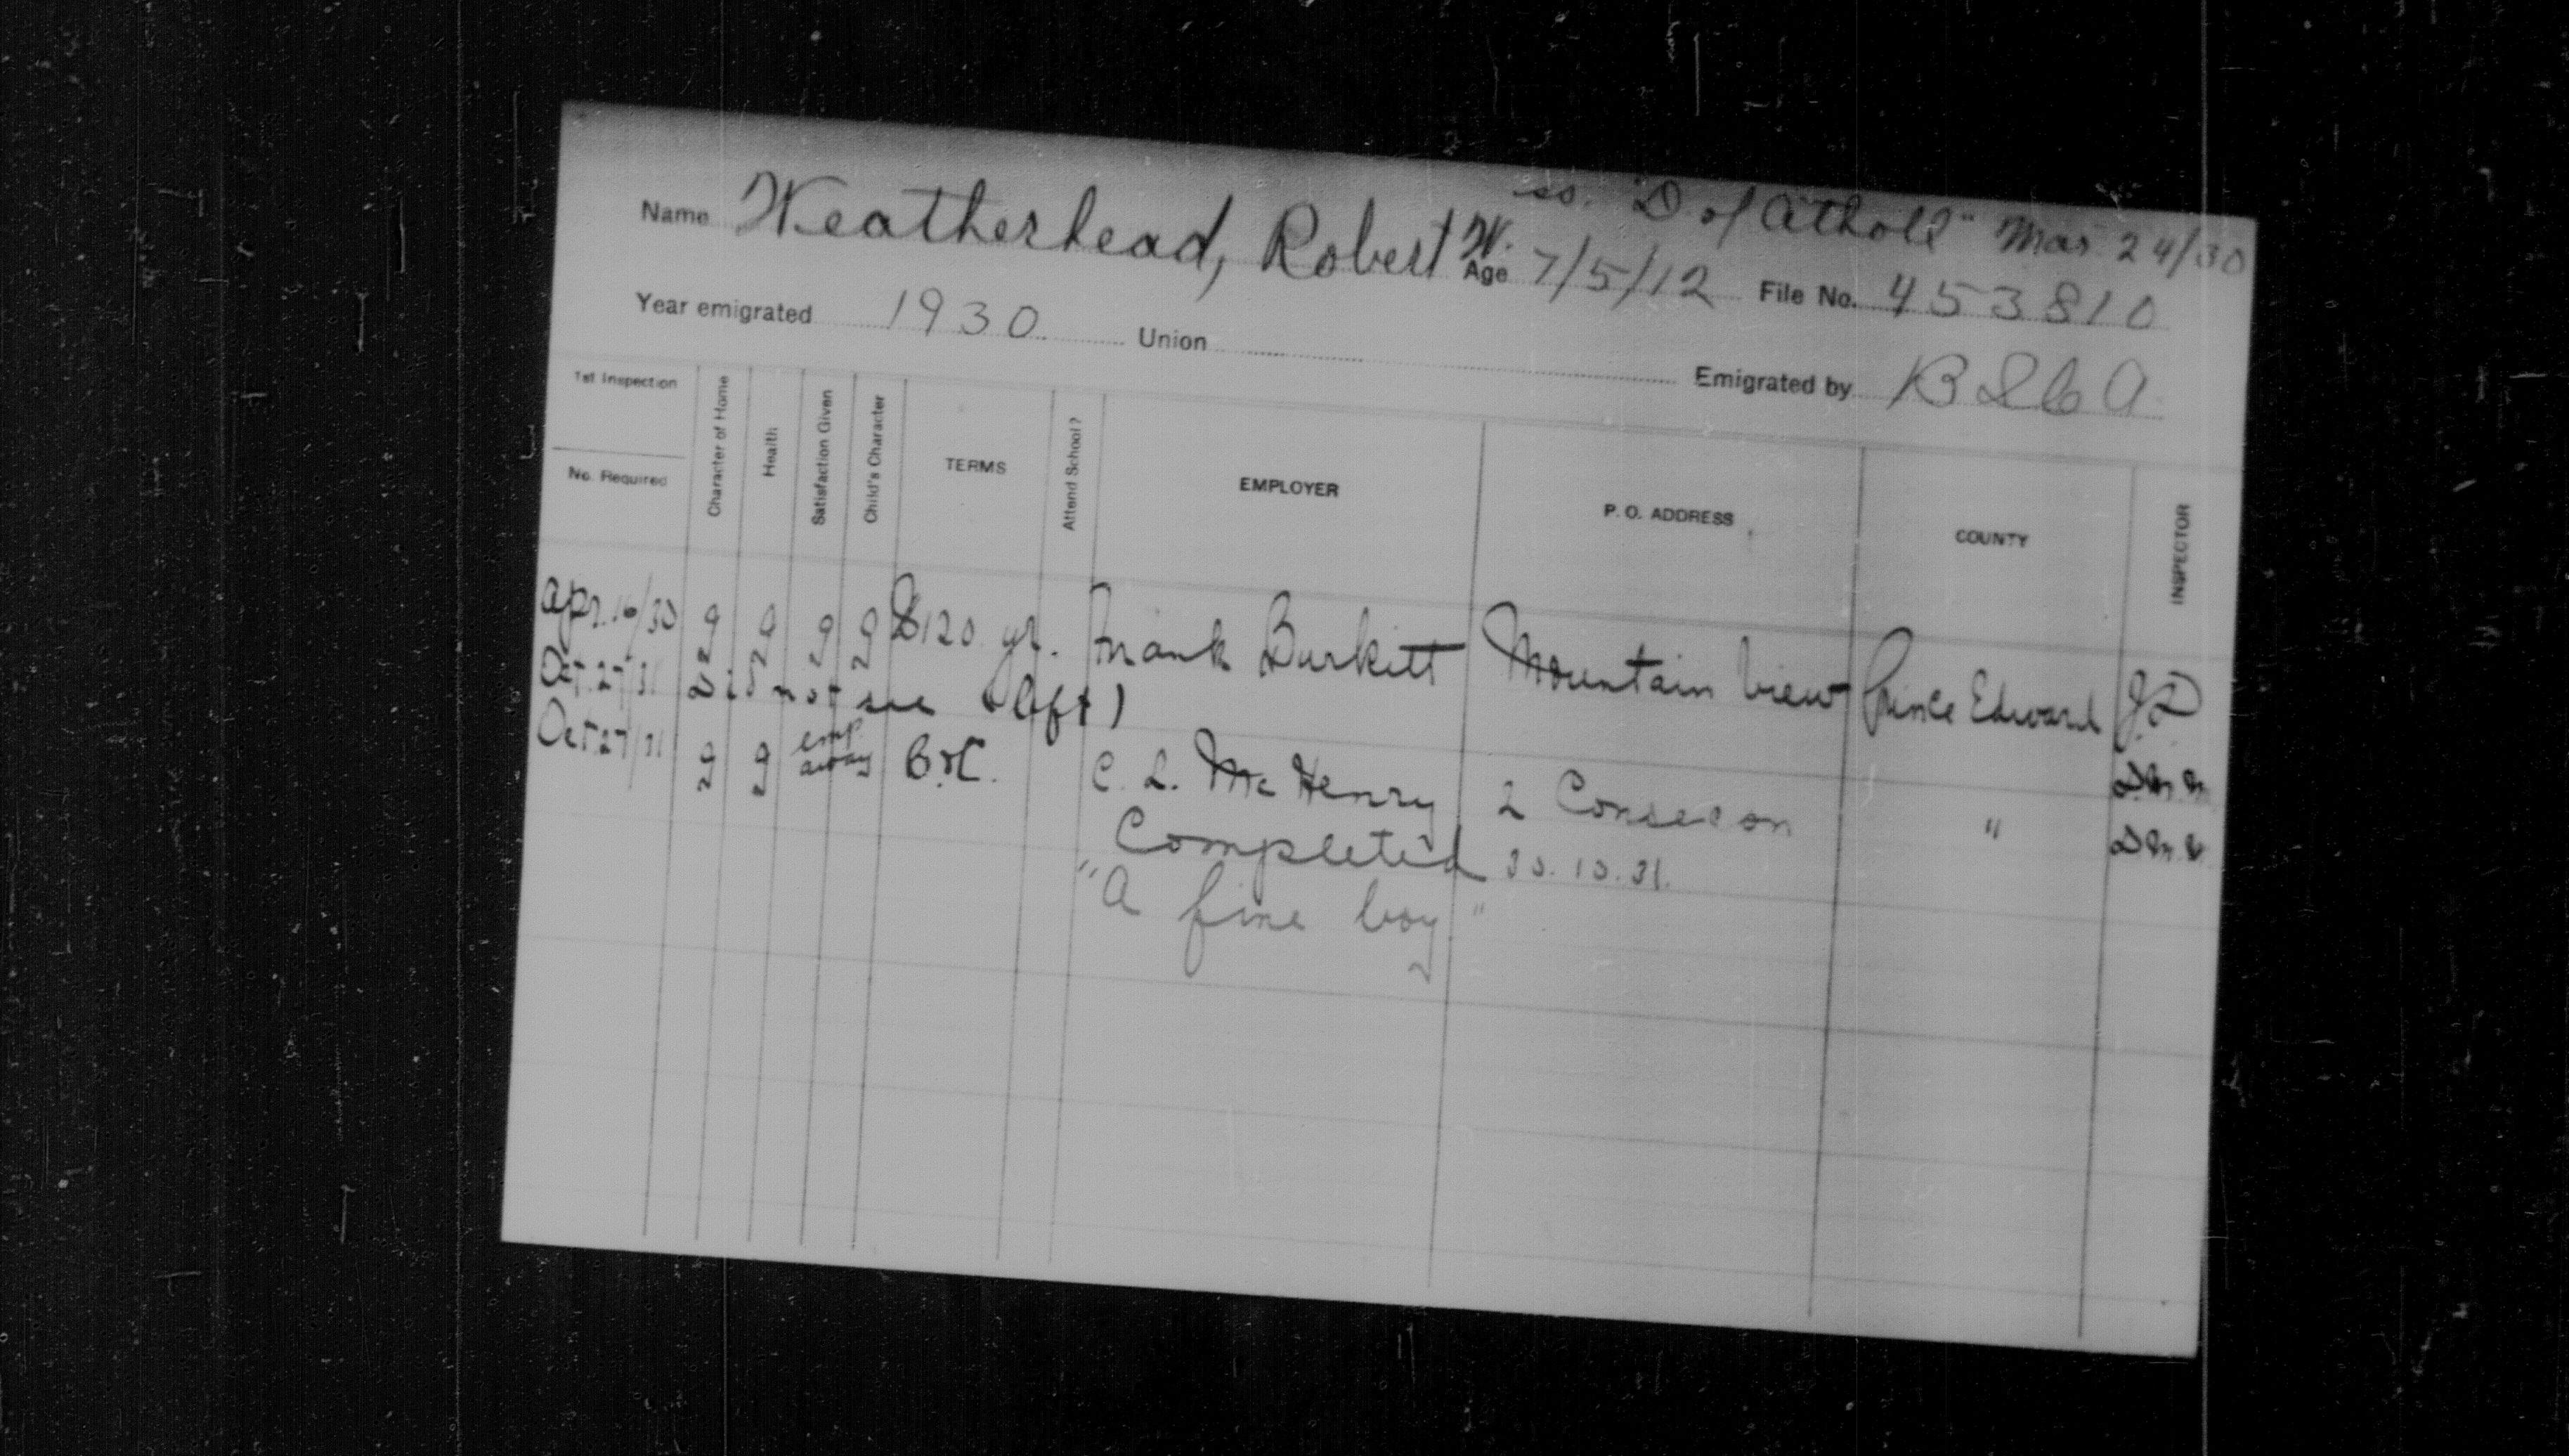 ss. "D of Atholl" Mar 24/30
Name Weatherhead, Robert W. Age 7/5/12 File No. 453810
Year emigrated 1930 Union Emigrated by
1st Inspection
No. Required Character of Home Health Satisfaction Given Child's Character TERMS Attend School? EMPLOYER P. O. ADDRESS COUNTY INSPECTOR
Apr. 16/30 g g g g $120 yr. Frank Burkitt Mountain View Prince Edward J.D.
Oct 27/31 Did not see (left)
Oct 27/31 g g emp. away C. L. McHenry 2 Consecon "
Completed 30.10.31.
"A fine boy"